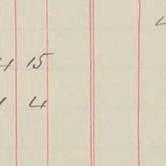 4
4 15
1 4